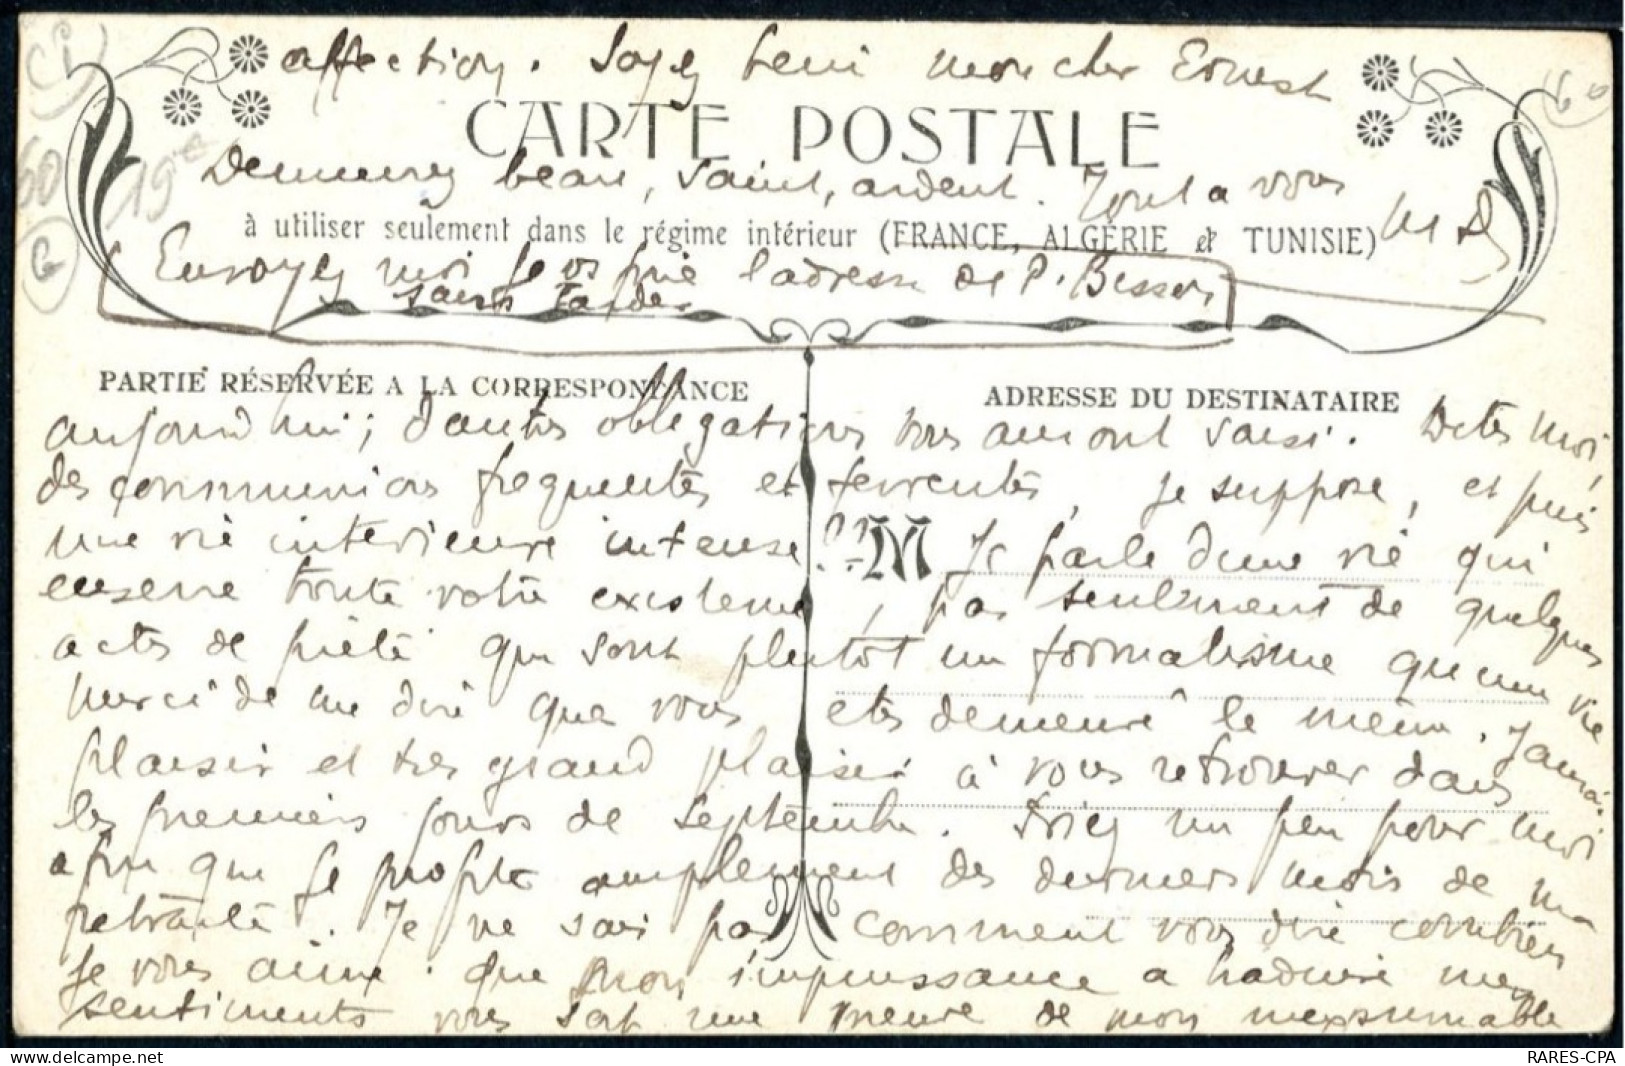 affection. Soyez beni mon cher Ernest
CARTE POSTALE
Demeurez beau, saint, ardent. Tout a vous
à utiliser seulement dans le régime intérieur (FRANCE, ALGÉRIE et TUNISIE)
Envoyez moi je vs prie l'adresse de P. Besson
sans tarder
PARTIE RÉSERVÉE A LA CORRESPONDANCE
ADRESSE DU DESTINATAIRE
aujourd'hui; d'autres obligations vous auront saisi. Dites moi,
des communions frequentes et ferventes, je suppose, et puis
une vie interieure intense ?! M Je parle d'une vie qui
enserre toute votre existence, pas seulement de quelques
actes de piété qui sont plutôt un formalisme qu'une vie
Merci de me dire que vous etes demeuré le même. J'aurai
plaisir et tres grand plaisir à vous retrouver dans
les premiers jours de Septembre. Priez un peu pour moi
afin que je profite amplement des derniers mois de ma
retraite. Je ne sais pas comment vous dire combien
je vous aime. que mon impuissance a traduire mes
sentiments vous soit une preuve de mon inexprimable
RARES-CPA